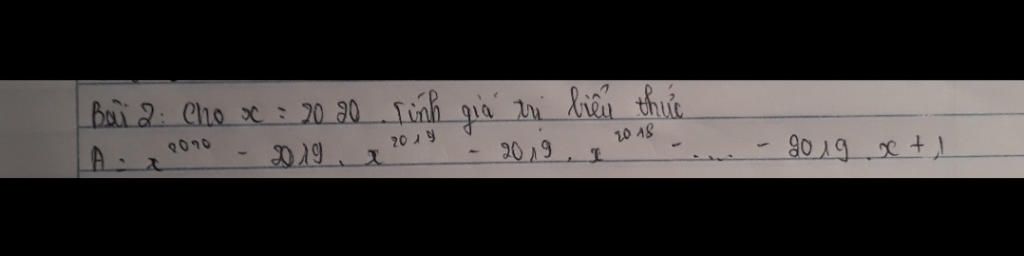 Bài 2: Cho x = 2020. Tính giá trị biểu thức
A = x^2020 - 2019. x^2019 - 2019. x^2018 - .... - 2019. x + 1